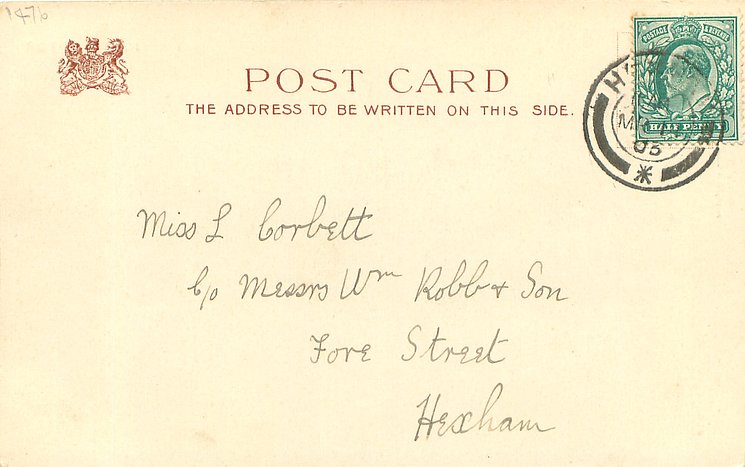 1476
POST CARD
THE ADDRESS TO BE WRITTEN ON THIS SIDE.
POSTAGE & REVENUE
HALF PENNY
MR
03
Miss L Corbett
C/o Messrs Wm Robb & Son
Fore Street
Hexham